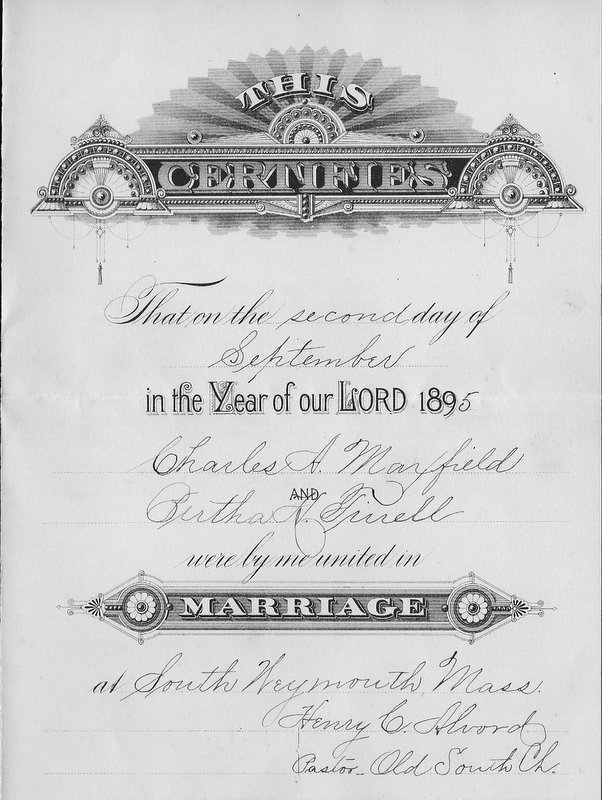 THIS
CERTIFIES
That on the second day of
September
in the Year of our LORD 1895
Charles A. Mayfield
AND
Bertha N. Tirrell
were by me united in
MARRIAGE
at South Weymouth, Mass.
Henry C. Alvord
Pastor - Old South Ch.